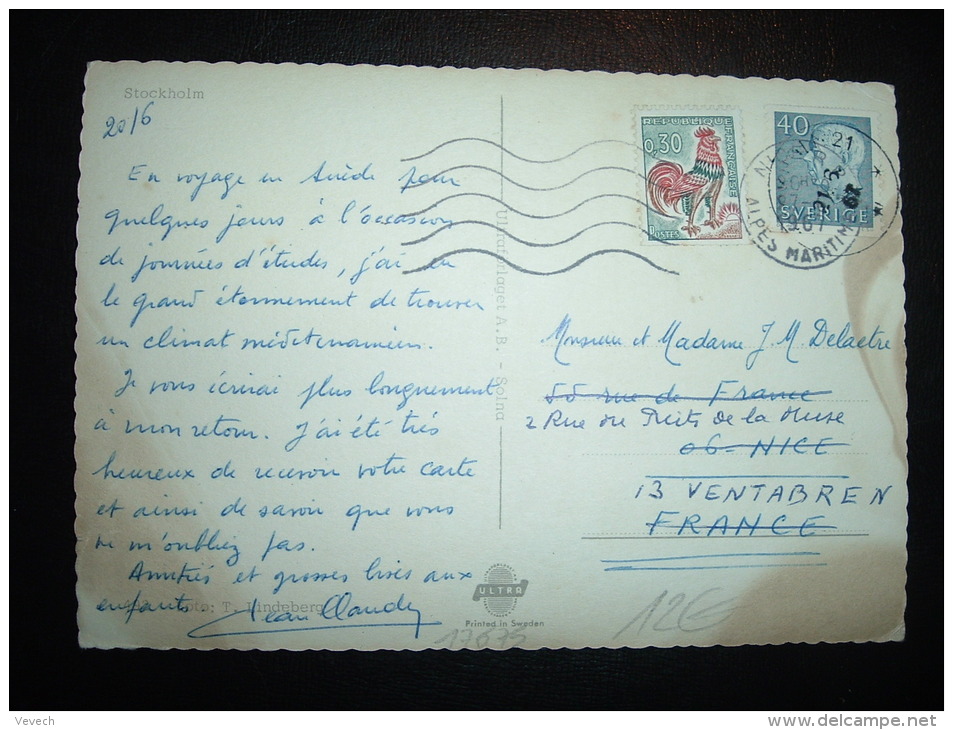 Stockholm
20/6
En voyage en Suède pour
quelques jours à l'occasion
de journées d'études, j'ai eu
le grand étonnement de trouver
un climat méditerranéen.
Je vous écrirai plus longuement
à mon retour. J'ai été très
heureux de recevoir votre carte
et ainsi de savoir que vous
ne m'oubliez pas.
Amitiés et grosses bises aux
enfants. Jean Claude
Foto: T. Lindeberg
Ultraförlaget A.B. - Solna
REPUBLIQUE FRANÇAISE
0,30
POSTES
40
SVERIGE
21
ALPES MARITIMES
1967
Monsieur et Madame J. M. Delaetre
55 rue de France
2 Rue du Puits de la Muse
06-NICE
13 VENTABREN
FRANCE
ULTRA
Printed in Sweden
17675
12€
Vevech
www.delcampe.net